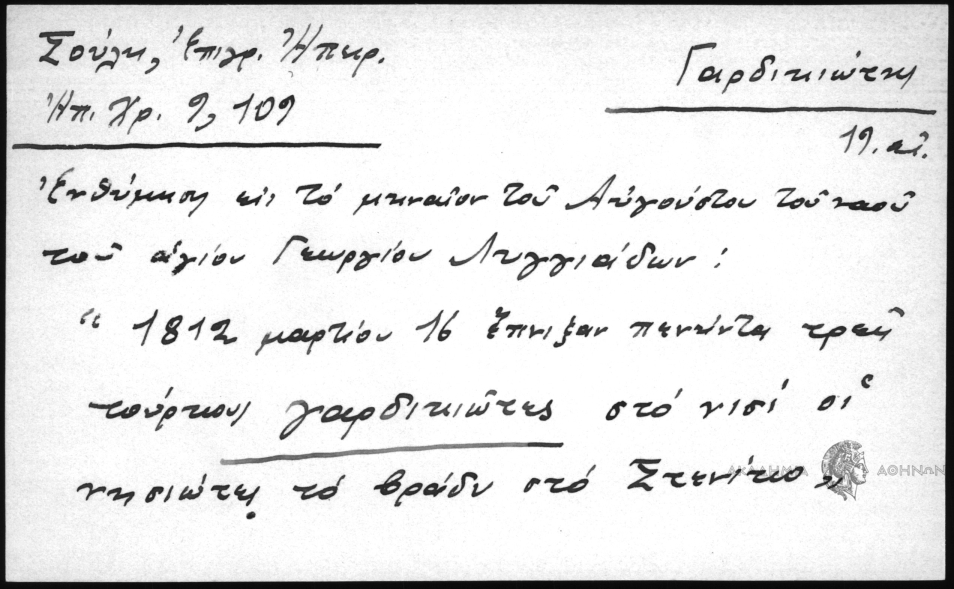 Σούλη, Ἐπιγρ. Ἠπειρ.
Ἠπ. Χρ. 9, 109
Γαρδικιώτης
19. αἰ.
Ἐνθύμηση εἰς τό μηναῖον τοῦ Αὐγούστου τοῦ ναοῦ
τοῦ ἁγίου Γεωργίου Λυγγιάδων :
“ 1812 μαρτίου 16 ἔπνιξαν πενήντα τρεῖς
τούρκους γαρδικιῶτες στό νισί οἱ
νησιώτες τό βράδυ στό
ΑΚΑΔΗΜΙΑ ΑΘΗΝΩΝ